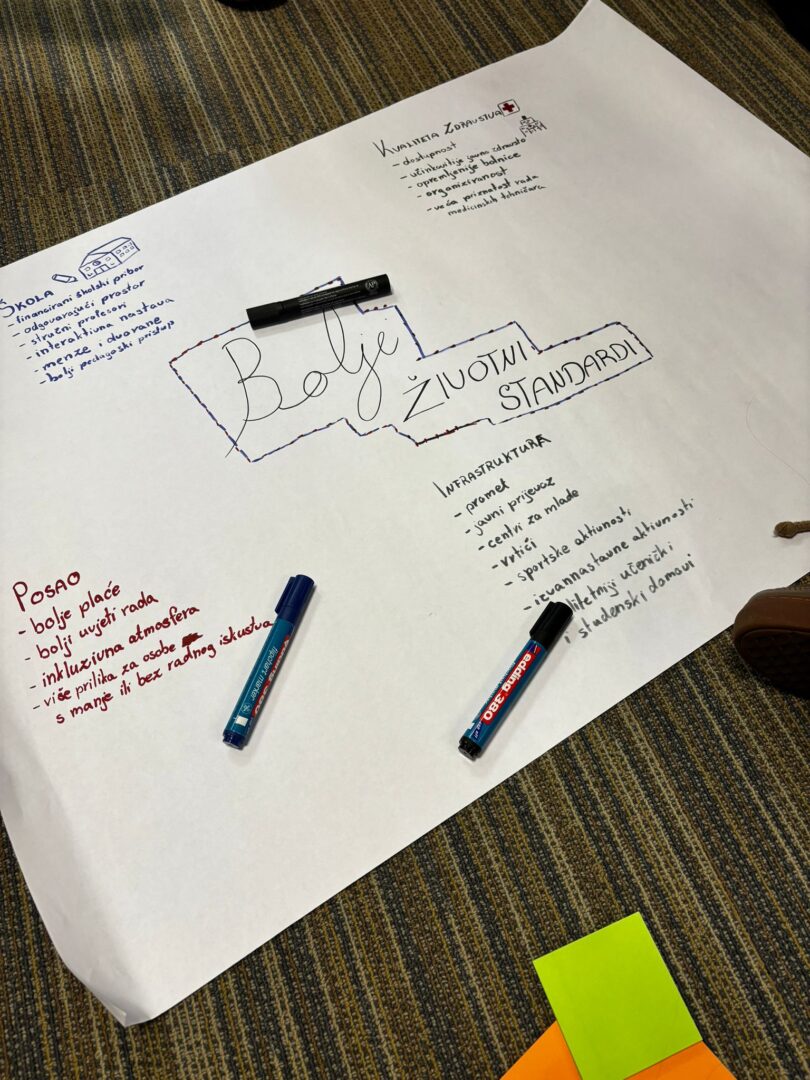 KVALITETA ZDRAVSTVA
- dostupnost
- učinkovitije javno zdravstvo
- opremljenije bolnice
- organiziranost
- veća priznatost rada
medicinskih tehničara
ŠKOLA
- financirani školski pribor
- odgovarajući prostor
- stručni profesori
- interaktivna nastava
- menze i dvorane
- bolji pedagoški pristup
Bolje
ŽIVOTNI
STANDARDI
INFRASTRUKTURA
- promet
- javni prijevoz
- centri za mlade
- vrtići
- sportske aktivnosti
- izvannastavne aktivnosti
litetniji učenički
i studenski domovi
POSAO
- bolje plaće
- bolji uvjeti rada
- inkluzivna atmosfera
- više prilika za osobe
s manje ili bez radnog iskustva
flipchart marker
edding 380